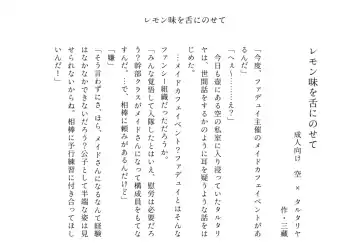 レモン味を舌にのせて
レモン味を舌にのせて
成人向け　空　×　タルタリヤ
作・三蔵
「今度、ファデュイ主催のメイドカフェイベントがあ
「へぇ～………え？」
　今日も壺にある空の私室に入り浸っていたタルタリ
ヤは、世間話をするかのように耳を疑うような話をは
じめた。
　…メイドカフェイベント？ファデュイとはそんな
ファンシー組織だっただろうか。
「みんな覚悟して入隊したとはいえ、慰労は必要だろ
う？幹部クラスがメイドさんになって構成員をもてな
すんだ。…で、相棒に頼みがあるんだけど」
「嫌」
「そう言わずにさ、ほら、メイドさんになるなんて経験
はなかなかできないだろう？公子として半端な姿は見
せられないからね。相棒に予行練習に付き合ってほし
いんだ！」